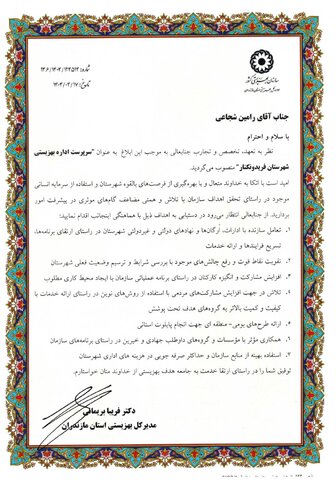 سازمان بهزیستی کشور
جناب آقای رامین شجاعی
با سلام و احترام
نظر به تعهد، تخصص و تجارب جنابعالی به موجب این ابلاغ به عنوان "سرپرست اداره بهزیستی
شهرستان فریدونکنار" منصوب می‌گردید.
امید است با اتکا به خداوند متعال و با بهره‌گیری از فرصت‌های بالقوه شهرستان و استفاده از سرمایه انسانی
موجود در راستای تحقق اهداف سازمان با تلاش و همتی مضاعف گام‌های موثری در پیشرفت امور
بردارید. از جنابعالی انتظار می‌رود در دستیابی به اهداف ذیل با هماهنگی اینجانب اقدام نمایید:
۱. تعامل سازنده با ادارات، ارگان‌ها و نهادهای دولتی و غیردولتی شهرستان در راستای ارتقای برنامه‌ها،
تسریع فرایندها و ارائه خدمات
۲. تقویت نقاط قوت و رفع چالش‌های موجود با بررسی شرایط و ترسیم وضعیت فعلی شهرستان
۳. افزایش مشارکت و انگیزه کارکنان در راستای برنامه عملیاتی سازمان با ایجاد محیط کاری مطلوب
۴. تلاش در جهت افزایش مشارکت‌های مردمی با استفاده از روش‌های نوین در راستای ارائه خدمات با
کیفیت و کمیت بالاتر به گروه‌های هدف تحت پوشش
۵. ارائه طرح‌های بومی- منطقه ای جهت انجام پایلوت استانی
۶. همکاری مؤثر با مؤسسات و گروه‌های داوطلب جهادی و خیرین در راستای برنامه‌های سازمان
۷. استفاده بهینه از منابع سازمان و حداکثر صرفه جویی در هزینه های اداری شهرستان
توفیق شما را در راستای ارتقا خدمت به جامعه هدف بهزیستی از خداوند منان خواستارم.
دکتر فریبا بریمانی
مدیرکل بهزیستی استان مازندران